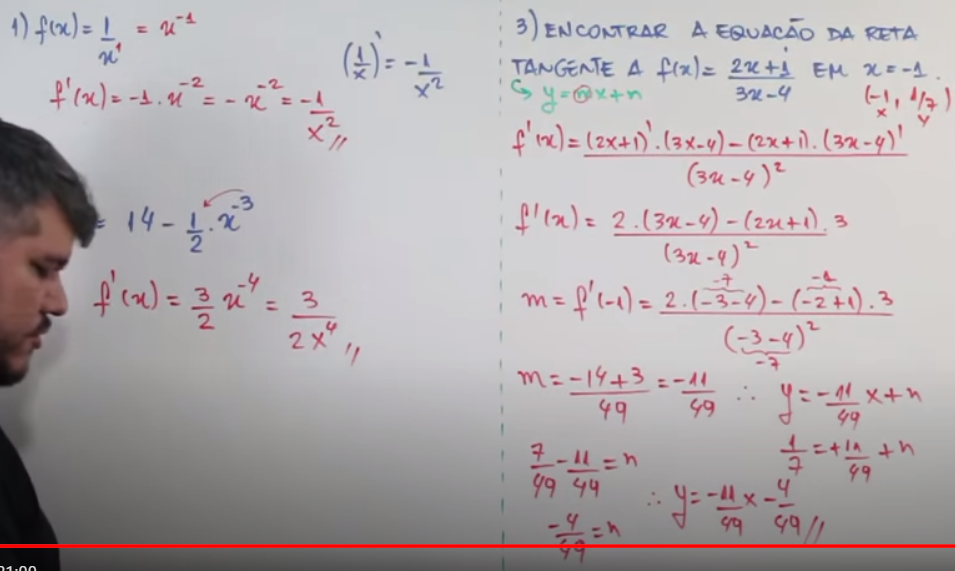 1) f(x) = 1/x¹ = x⁻¹
(1/x)' = -1/x²
f'(x) = -1 . x⁻² = - x⁻² = -1/x² //
= 14 - 1/2 . x⁻³
f'(x) = 3/2 x⁻⁴ = 3/2x⁴ //
3) ENCONTRAR A EQUAÇÃO DA RETA
TANGENTE A f(x) = 2x+1/3x-4 EM x = -1.
↳ y = mx + n
(-1, 1/7)
x y
f'(x) = (2x+1)' . (3x-4) - (2x+1) . (3x-4)'/(3x-4)²
f'(x) = 2 . (3x-4) - (2x+1) . 3/(3x-4)²
-7 -1
m = f'(-1) = 2 . (-3-4) - (-2+1) . 3/(-3-4)²
-7
m = -14+3/49 = -11/49 ∴ y = -11/49 x + n
1/7 = +11/49 + n
7/49 - 11/49 = n
-4/49 = n
∴ y = -11/49 x - 4/49 //